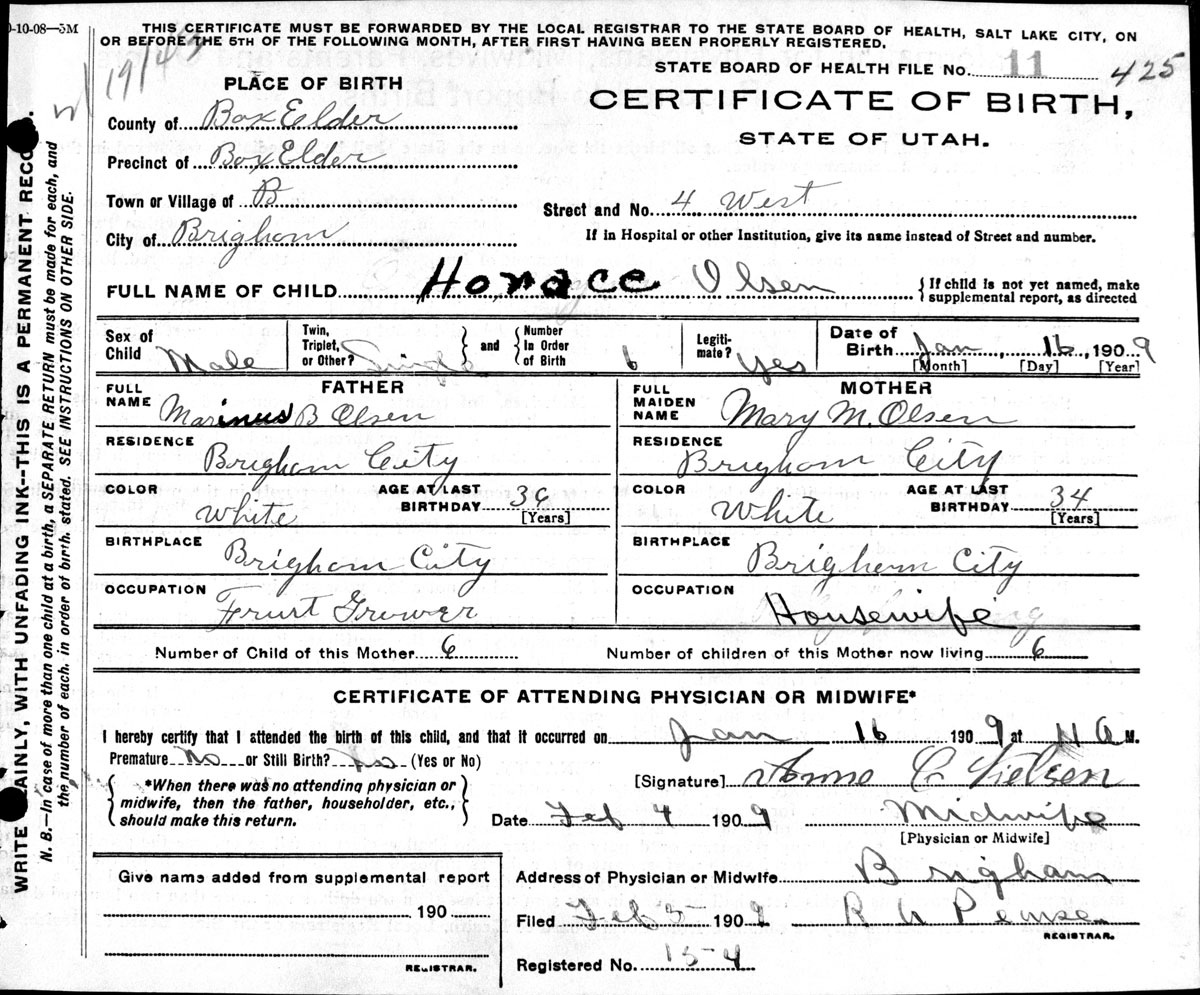 0-10-08—5M
THIS CERTIFICATE MUST BE FORWARDED BY THE LOCAL REGISTRAR TO THE STATE BOARD OF HEALTH, SALT LAKE CITY, ON
OR BEFORE THE 5TH OF THE FOLLOWING MONTH, AFTER FIRST HAVING BEEN PROPERLY REGISTERED.
STATE BOARD OF HEALTH FILE No. 11 425
PLACE OF BIRTH
CERTIFICATE OF BIRTH,
STATE OF UTAH.
County of Box Elder
Precinct of Box Elder
Town or Village of B
City of Brigham
Street and No. 4 West
If in Hospital or other Institution, give its name instead of Street and number.
FULL NAME OF CHILD Horace Olsen
{ If child is not yet named, make
supplemental report, as directed
Sex of Child Male
Twin, Triplet, or Other? Single
and Number In Order of Birth 6
Legiti-mate? Yes
Date of Birth Jan, 16, 1909
[Month] [Day] [Year]
FATHER
FULL NAME Marinus B Olsen
RESIDENCE Brigham City
COLOR White AGE AT LAST BIRTHDAY [Years]
BIRTHPLACE Brigham City
OCCUPATION Fruit Grower
MOTHER
FULL MAIDEN NAME Mary M. Olsen
RESIDENCE Brigham City
COLOR White AGE AT LAST BIRTHDAY 34 [Years]
BIRTHPLACE Brigham City
OCCUPATION Housewife
Number of Child of this Mother 6
Number of children of this Mother now living 6
CERTIFICATE OF ATTENDING PHYSICIAN OR MIDWIFE*
I hereby certify that I attended the birth of this child, and that it occurred on Jan 16 1909 at A M.
Premature No or Still Birth? No (Yes or No)
*When there was no attending physician or
midwife, then the father, householder, etc.,
should make this return.
[Signature] C Nielsen
Date Feb 4 1909 Midwife
[Physician or Midwife]
Give name added from supplemental report
190
REGISTRAR.
Address of Physician or Midwife Brigham
Filed Feb 1909 R
REGISTRAR.
Registered No. 15-4
WRITE PLAINLY, WITH UNFADING INK--THIS IS A PERMANENT RECORD.
N. B.—In case of more than one child at a birth, a SEPARATE RETURN must be made for each, and
the number of each, in order of birth, stated. SEE INSTRUCTIONS ON OTHER SIDE.